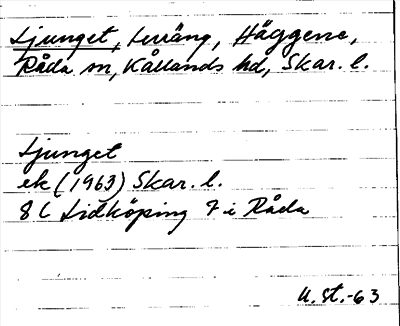 Ljunget, Leväng, Häggene,
Råda sn, Kållands hd, Skar. l.
Ljunget
ek (1963) Skar. l.
8 C Lidköping 7 i Råda
U. St.-63